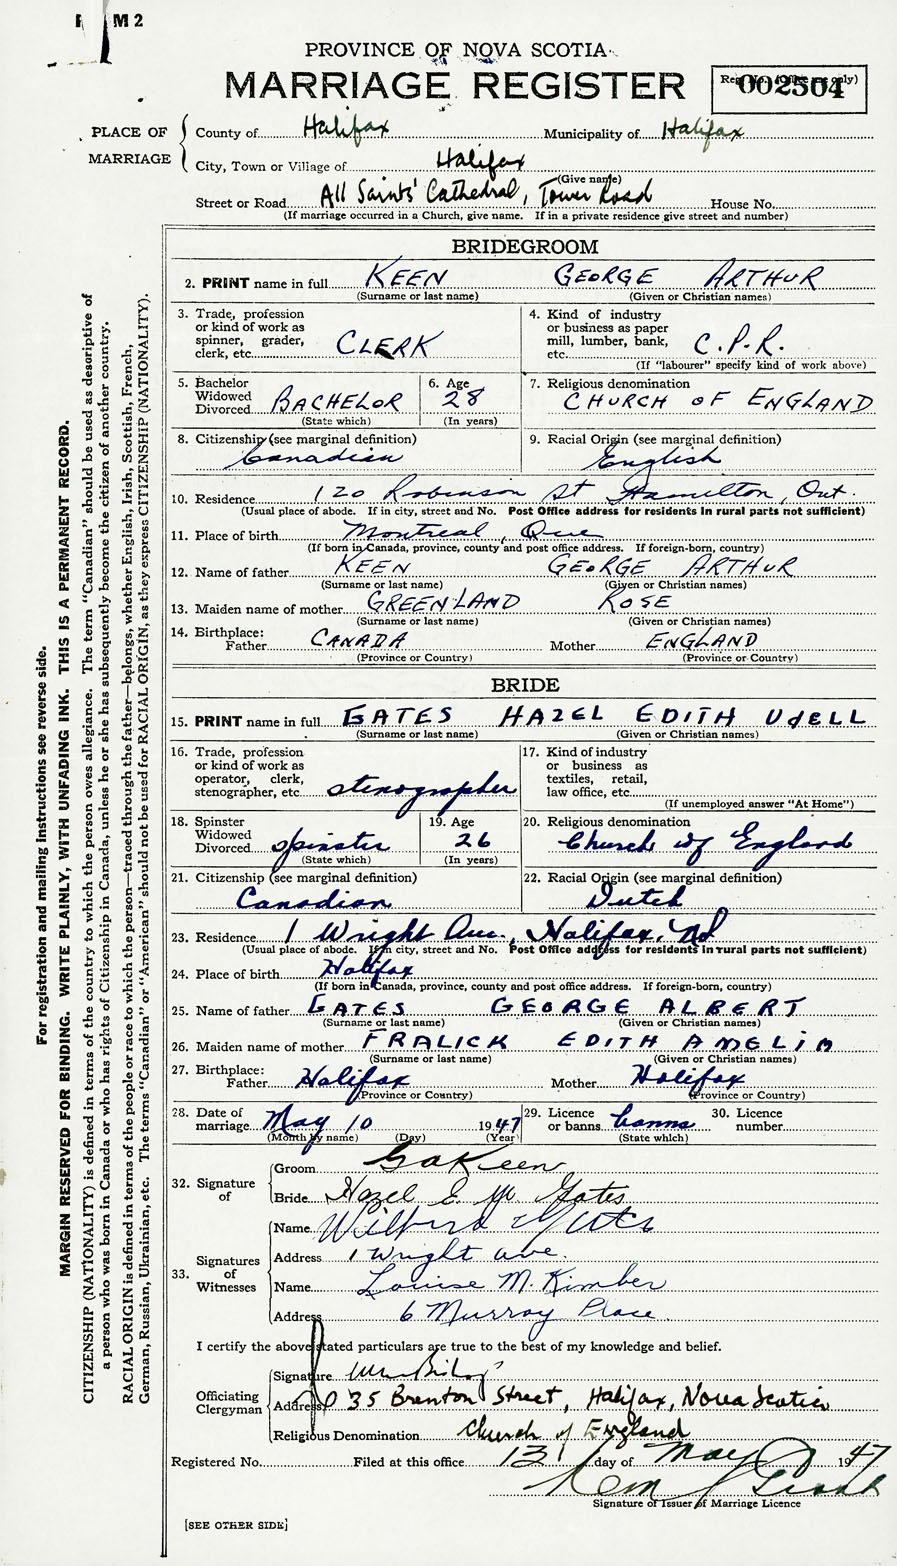 M 2
PROVINCE OF NOVA SCOTIA
MARRIAGE REGISTER
Reg. No. (Office use only)
002504
PLACE OF MARRIAGE
County of Halifax Municipality of Halifax
City, Town or Village of Halifax
(Give name)
Street or Road All Saints' Cathedral, Tower Road House No.
(If marriage occurred in a Church, give name. If in a private residence give street and number)
BRIDEGROOM
2. PRINT name in full KEEN GEORGE ARTHUR
(Surname or last name) (Given or Christian names)
3. Trade, profession or kind of work as spinner, grader, clerk, etc. CLERK
4. Kind of industry or business as paper mill, lumber, bank, etc. C.P.R.
(If "labourer" specify kind of work above)
5. Bachelor Widowed Divorced BACHELOR
(State which)
6. Age 28
(In years)
7. Religious denomination CHURCH OF ENGLAND
8. Citizenship (see marginal definition) Canadian
9. Racial Origin (see marginal definition) English
10. Residence 120 Robinson St Hamilton, Ont.
(Usual place of abode. If in city, street and No. Post Office address for residents in rural parts not sufficient)
11. Place of birth Montreal, Que
(If born in Canada, province, county and post office address. If foreign-born, country)
12. Name of father KEEN GEORGE ARTHUR
(Surname or last name) (Given or Christian names)
13. Maiden name of mother GREENLAND ROSE
(Surname or last name) (Given or Christian names)
14. Birthplace: Father CANADA Mother ENGLAND
(Province or Country) (Province or Country)
BRIDE
15. PRINT name in full GATES HAZEL EDITH UdELL
(Surname or last name) (Given or Christian names)
16. Trade, profession or kind of work as operator, clerk, stenographer, etc stenographer
17. Kind of industry or business as textiles, retail, law office, etc.
(If unemployed answer "At Home")
18. Spinster Widowed Divorced spinster
(State which)
19. Age 26
(In years)
20. Religious denomination Church of England
21. Citizenship (see marginal definition) Canadian
22. Racial Origin (see marginal definition) Dutch
23. Residence 1 Wright Ave., Halifax,
(Usual place of abode. If in city, street and No. Post Office address for residents in rural parts not sufficient)
24. Place of birth Halifax
(If born in Canada, province, county and post office address. If foreign-born, country)
25. Name of father GATES GEORGE ALBERT
(Surname or last name) (Given or Christian names)
26. Maiden name of mother FRALICK EDITH AMELIA
(Surname or last name) (Given or Christian names)
27. Birthplace: Father Halifax Mother Halifax
(Province or Country) (Province or Country)
28. Date of marriage May 10 1947
(Month by name) (Day) (Year)
29. Licence or banns banns
(State which)
30. Licence number
32. Signature of
Groom G a Keen
Bride Hazel E. M. Gates
33. Signatures of Witnesses
Name Gates
Address 1 Wright ave.
Name Louise M. Kimber
Address 6 Murray Place
I certify the above stated particulars are true to the best of my knowledge and belief.
Officiating Clergyman
Signature
Address 35 Brenton Street, Halifax, Nova Scotia
Religious Denomination Church of England
Registered No. Filed at this office 13 day of May 1947
Signature of Issuer of Marriage Licence
[SEE OTHER SIDE]
For registration and mailing instructions see reverse side.
MARGIN RESERVED FOR BINDING. WRITE PLAINLY, WITH UNFADING INK. THIS IS A PERMANENT RECORD.
CITIZENSHIP (NATIONALITY) is defined in terms of the country to which the person owes allegiance. The term "Canadian" should be used as descriptive of
a person who was born in Canada or who has rights of Citizenship in Canada, unless he or she has subsequently become the citizen of another country.
RACIAL ORIGIN is defined in terms of the people or race to which the person—traced through the father—belongs, whether English, Irish, Scottish, French,
German, Russian, Ukrainian, etc. The terms "Canadian" or "American" should not be used for RACIAL ORIGIN, as they express CITIZENSHIP (NATIONALITY).